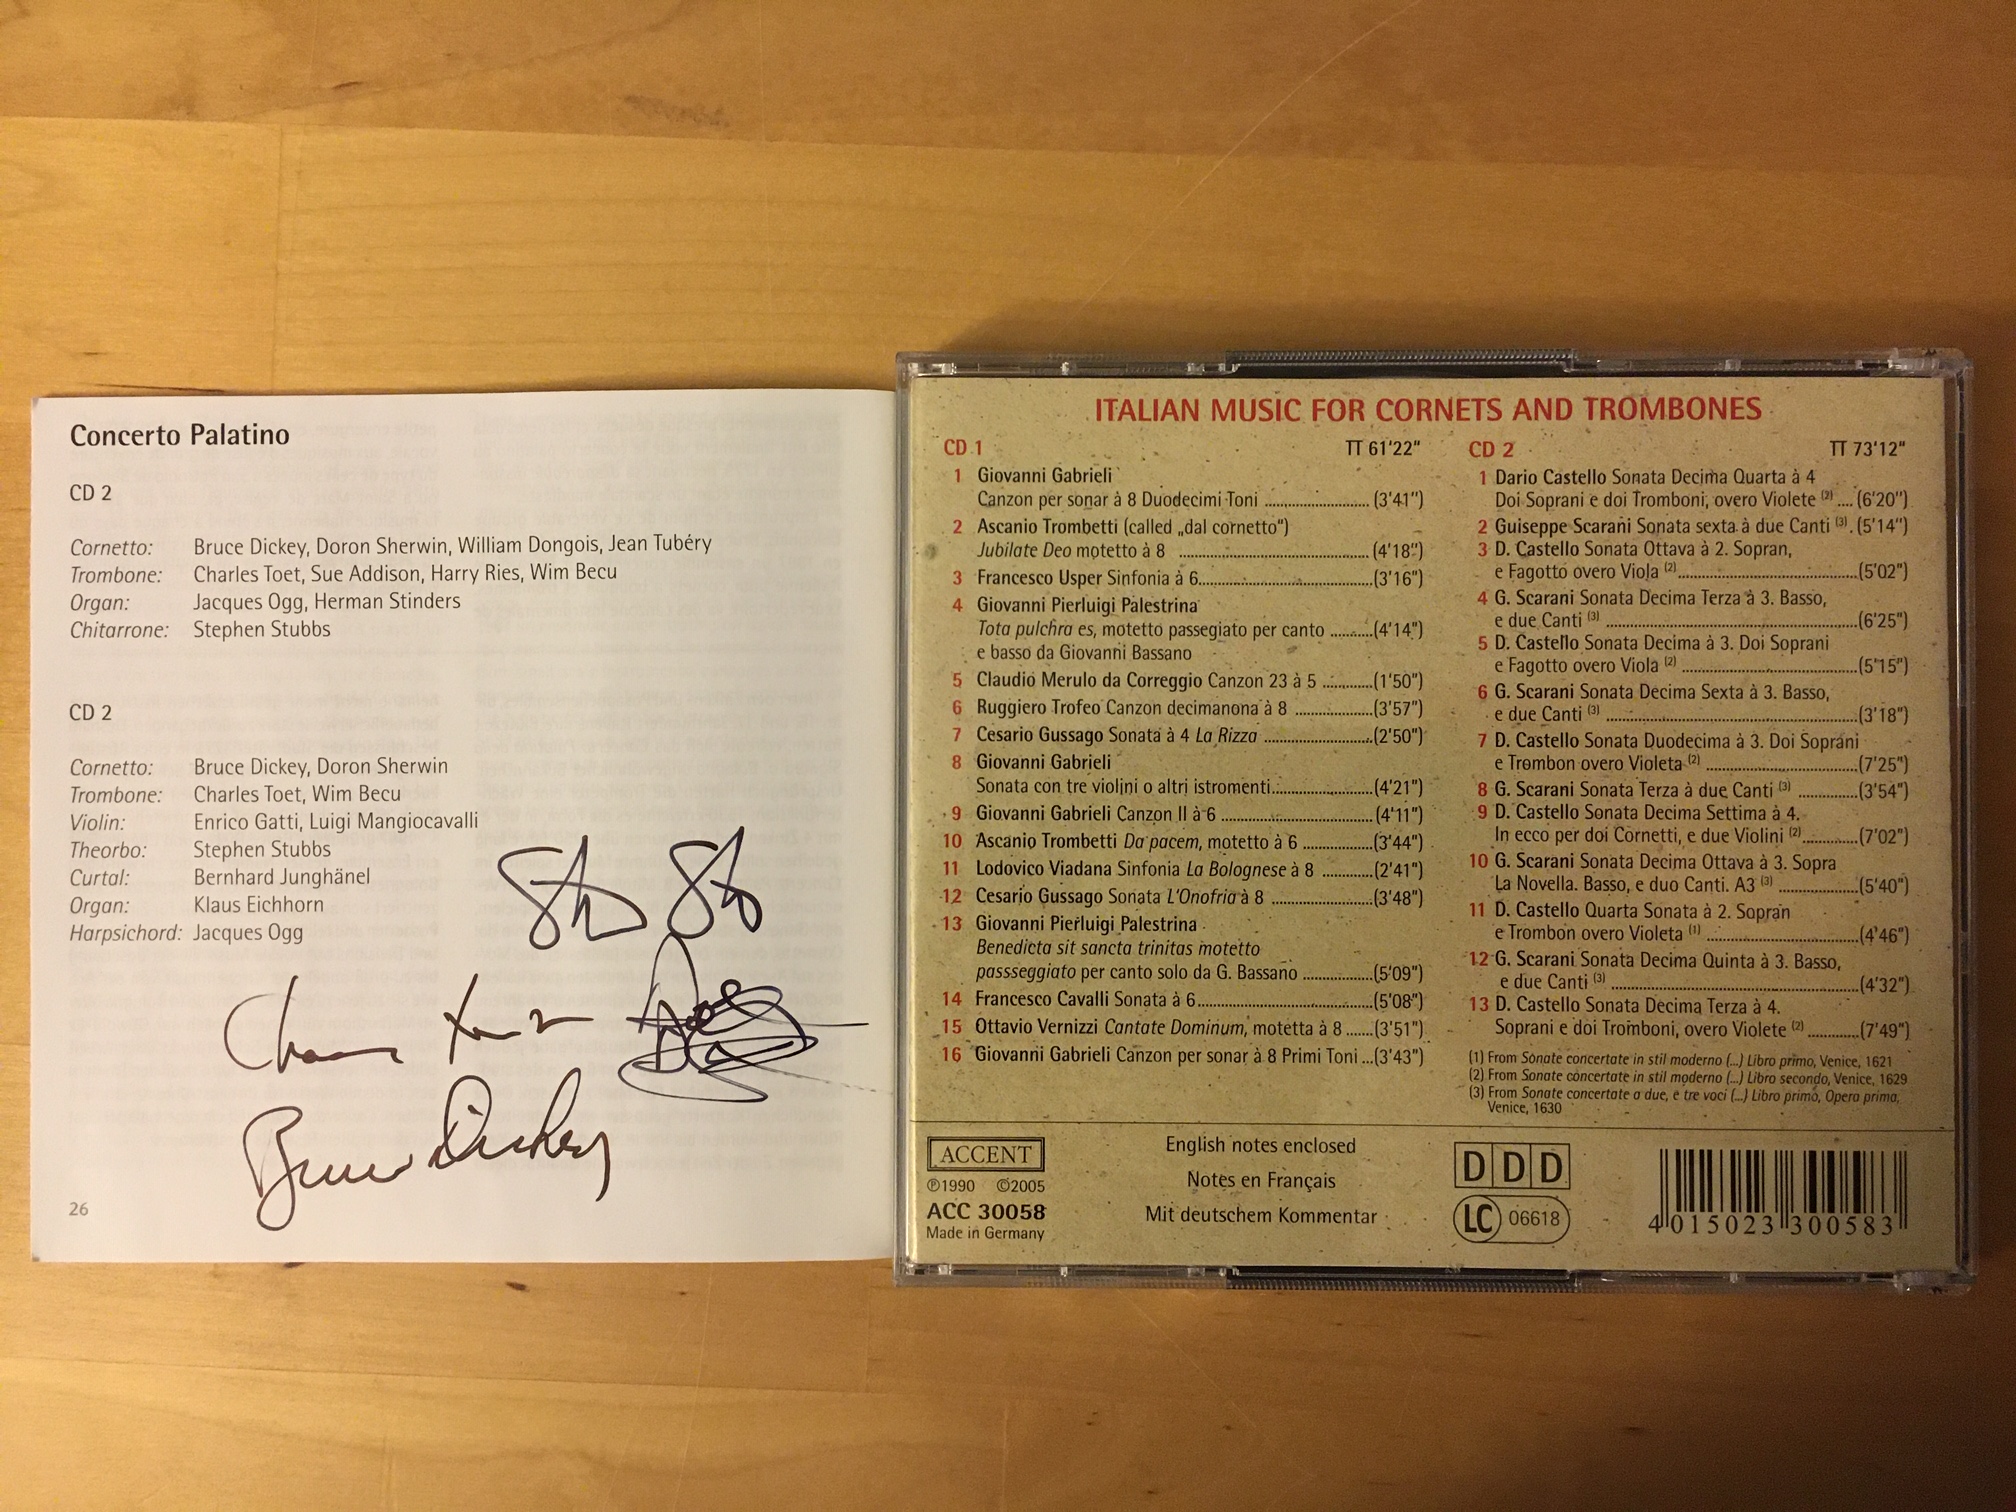 Concerto Palatino
CD 2
Cornetto: Bruce Dickey, Doron Sherwin, William Dongois, Jean Tubéry
Trombone: Charles Toet, Sue Addison, Harry Ries, Wim Becu
Organ: Jacques Ogg, Herman Stinders
Chitarrone: Stephen Stubbs
CD 2
Cornetto: Bruce Dickey, Doron Sherwin
Trombone: Charles Toet, Wim Becu
Violin: Enrico Gatti, Luigi Mangiocavalli
Theorbo: Stephen Stubbs
Curtal: Bernhard Junghänel
Organ: Klaus Eichhorn
Harpsichord: Jacques Ogg
Bruce Dickey
26
ITALIAN MUSIC FOR CORNETS AND TROMBONES
CD 1 TT 61'22"
1 Giovanni Gabrieli
Canzon per sonar à 8 Duodecimi Toni (3'41")
2 Ascanio Trombetti (called „dal cornetto")
Jubilate Deo motetto à 8 (4'18")
3 Francesco Usper Sinfonia à 6 (3'16")
4 Giovanni Pierluigi Palestrina
Tota pulchra es, motetto passegiato per canto (4'14")
e basso da Giovanni Bassano
5 Claudio Merulo da Correggio Canzon 23 à 5 (1'50")
6 Ruggiero Trofeo Canzon decimanona à 8 (3'57")
7 Cesario Gussago Sonata à 4 La Rizza (2'50")
8 Giovanni Gabrieli
Sonata con tre violini o altri istromenti (4'21")
9 Giovanni Gabrieli Canzon II à 6 (4'11")
10 Ascanio Trombetti Da pacem, motetto à 6 (3'44")
11 Lodovico Viadana Sinfonia La Bolognese à 8 (2'41")
12 Cesario Gussago Sonata L'Onofria à 8 (3'48")
13 Giovanni Pierluigi Palestrina
Benedicta sit sancta trinitas motetto
passseggiato per canto solo da G. Bassano (5'09")
14 Francesco Cavalli Sonata à 6 (5'08")
15 Ottavio Vernizzi Cantate Dominum, motetta à 8 (3'51")
16 Giovanni Gabrieli Canzon per sonar à 8 Primi Toni (3'43")
CD 2 TT 73'12"
1 Dario Castello Sonata Decima Quarta à 4
Doi Soprani e doi Tromboni, overo Violete (2) (6'20")
2 Guiseppe Scarani Sonata sexta à due Canti (3) (5'14")
3 D. Castello Sonata Ottava à 2. Sopran,
e Fagotto overo Viola (2) (5'02")
4 G. Scarani Sonata Decima Terza à 3. Basso,
e due Canti (3) (6'25")
5 D. Castello Sonata Decima à 3. Doi Soprani
e Fagotto overo Viola (2) (5'15")
6 G. Scarani Sonata Decima Sexta à 3. Basso,
e due Canti (3) (3'18")
7 D. Castello Sonata Duodecima à 3. Doi Soprani
e Trombon overo Violeta (2) (7'25")
8 G. Scarani Sonata Terza à due Canti (3) (3'54")
9 D. Castello Sonata Decima Settima à 4.
In ecco per doi Cornetti, e due Violini (2) (7'02")
10 G. Scarani Sonata Decima Ottava à 3. Sopra
La Novella. Basso, e duo Canti. A3 (3) (5'40")
11 D. Castello Quarta Sonata à 2. Sopran
e Trombon overo Violeta (1) (4'46")
12 G. Scarani Sonata Decima Quinta à 3. Basso,
e due Canti (3) (4'32")
13 D. Castello Sonata Decima Terza à 4.
Soprani e doi Tromboni, overo Violete (2) (7'49")
(1) From Sonate concertate in stil moderno (...) Libro primo, Venice, 1621
(2) From Sonate concertate in stil moderno (...) Libro secondo, Venice, 1629
(3) From Sonate concertate a due, e tre voci (...) Libro primo, Opera prima,
Venice, 1630
ACCENT
℗1990 ©2005
ACC 30058
Made in Germany
English notes enclosed
Notes en Français
Mit deutschem Kommentar
DDD
LC 06618
4 015023 300583